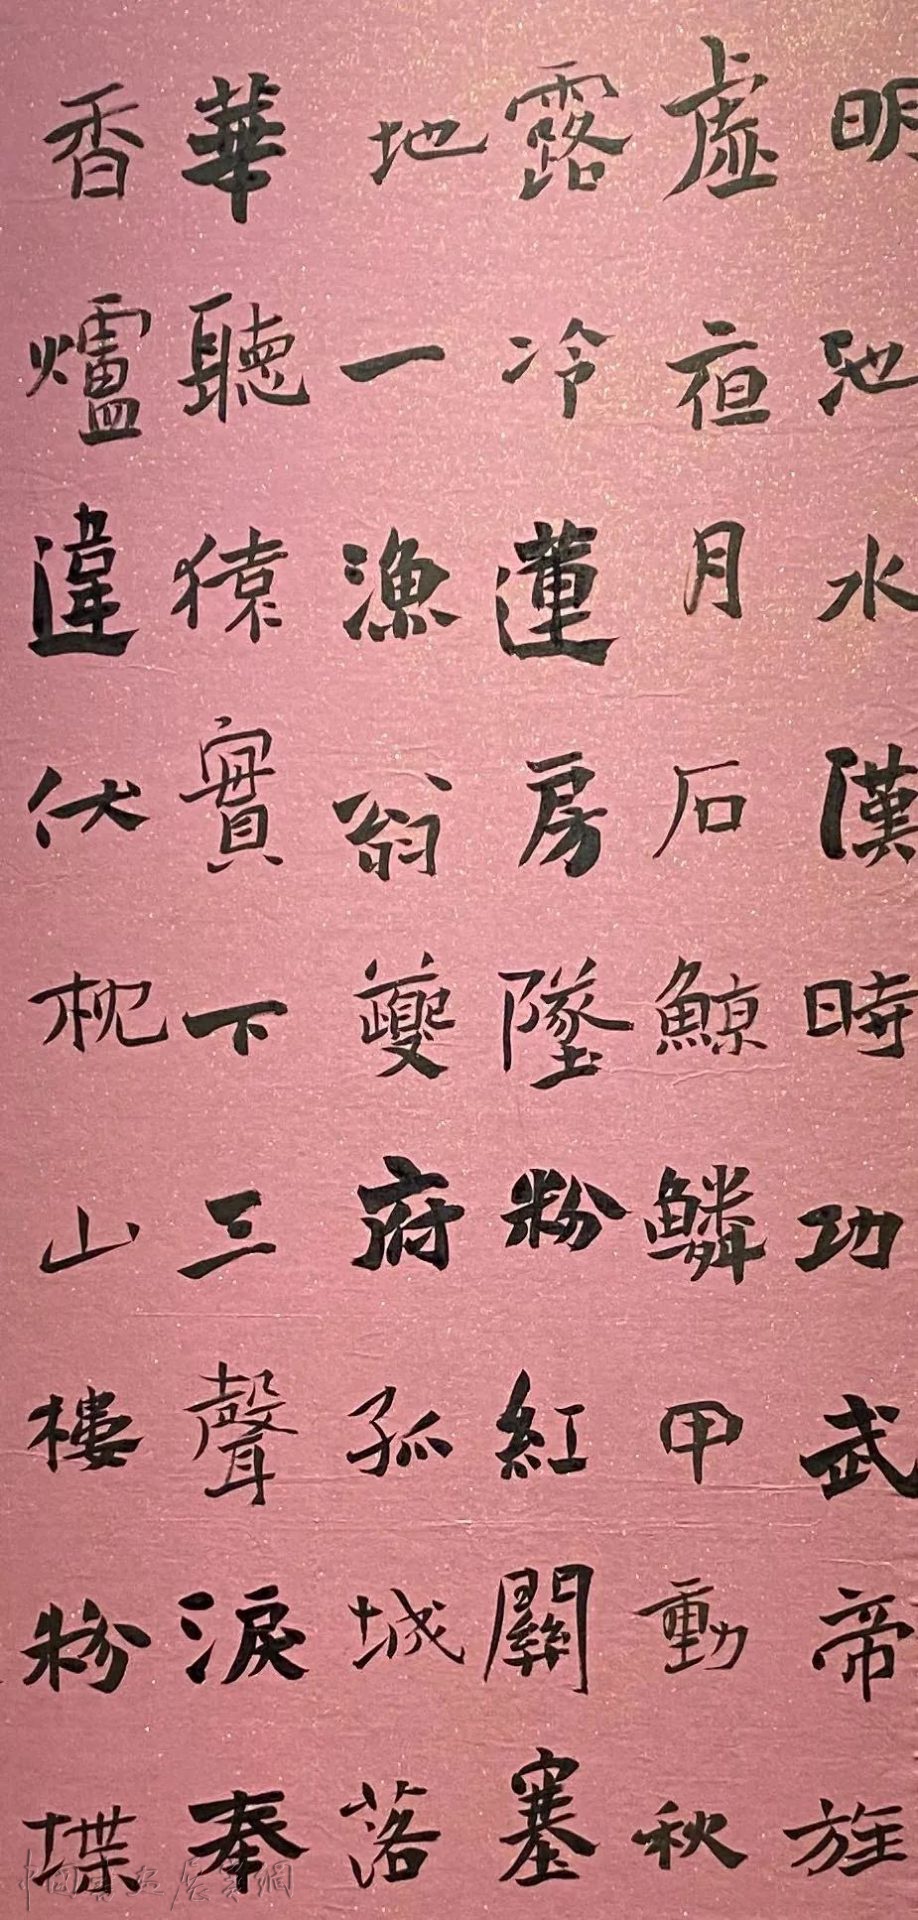 明池水漢時功武帝旌
虛夜月石鯨鱗甲動秋
露冷蓮房墜粉紅關塞
地一漁翁夔府孤城落
華聽猿實下三聲淚奉
香爐違伏枕山樓粉堞